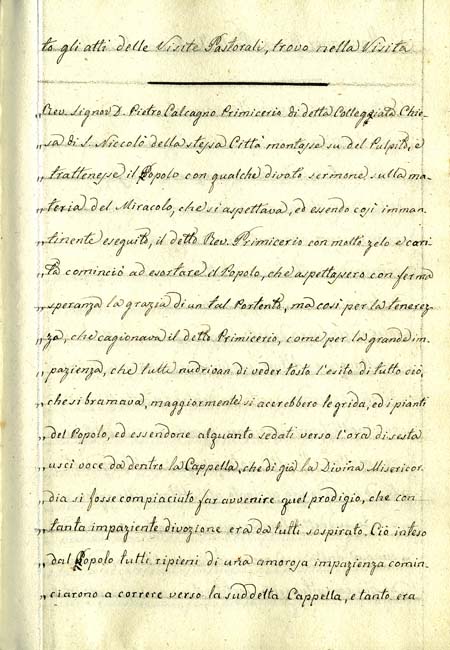 to gli atti delle Visite Pastorali, trovo nella Visita
„Rev. Signor D. Pietro Calcagno Primicerio di detta Colleggiata Chie-
„sa di S. Niccolò della stessa Città montasse su del Pulpito, e
„trattenesse il Popolo con qualche divoto sermone sulla ma-
„teria del Miracolo, che si aspettava, ed essendo così imman-
„tinente eseguito, il detto Rev. Primicerio con molto zelo e cari-
„tà cominciò ad esortare il Popolo, che aspettassero con ferma
„speranza la grazia di un tal Portento, ma così per la tenerez-
„za, che cagionava il detto Primicerio, come per la grande im-
„pazienza, che tutti nudrioan di veder tosto l'esito di tutto ciò,
„che si bramava, maggiormente si accrebbero le grida, ed i pianti
„del Popolo, ed essendone alquanto sedati verso l'ora di sesta
„uscì voce da dentro la Cappella, che di già la Divina Misericor-
„dia si fosse compiaciuto far avvenire quel prodigio, che con
„tanta impaziente divozione era da tutti sospirato. Ciò inteso
„dal Popolo tutti ripieni di una amorosa impazienza comin-
„ciarono a correre verso la suddetta Cappella, e tanto era